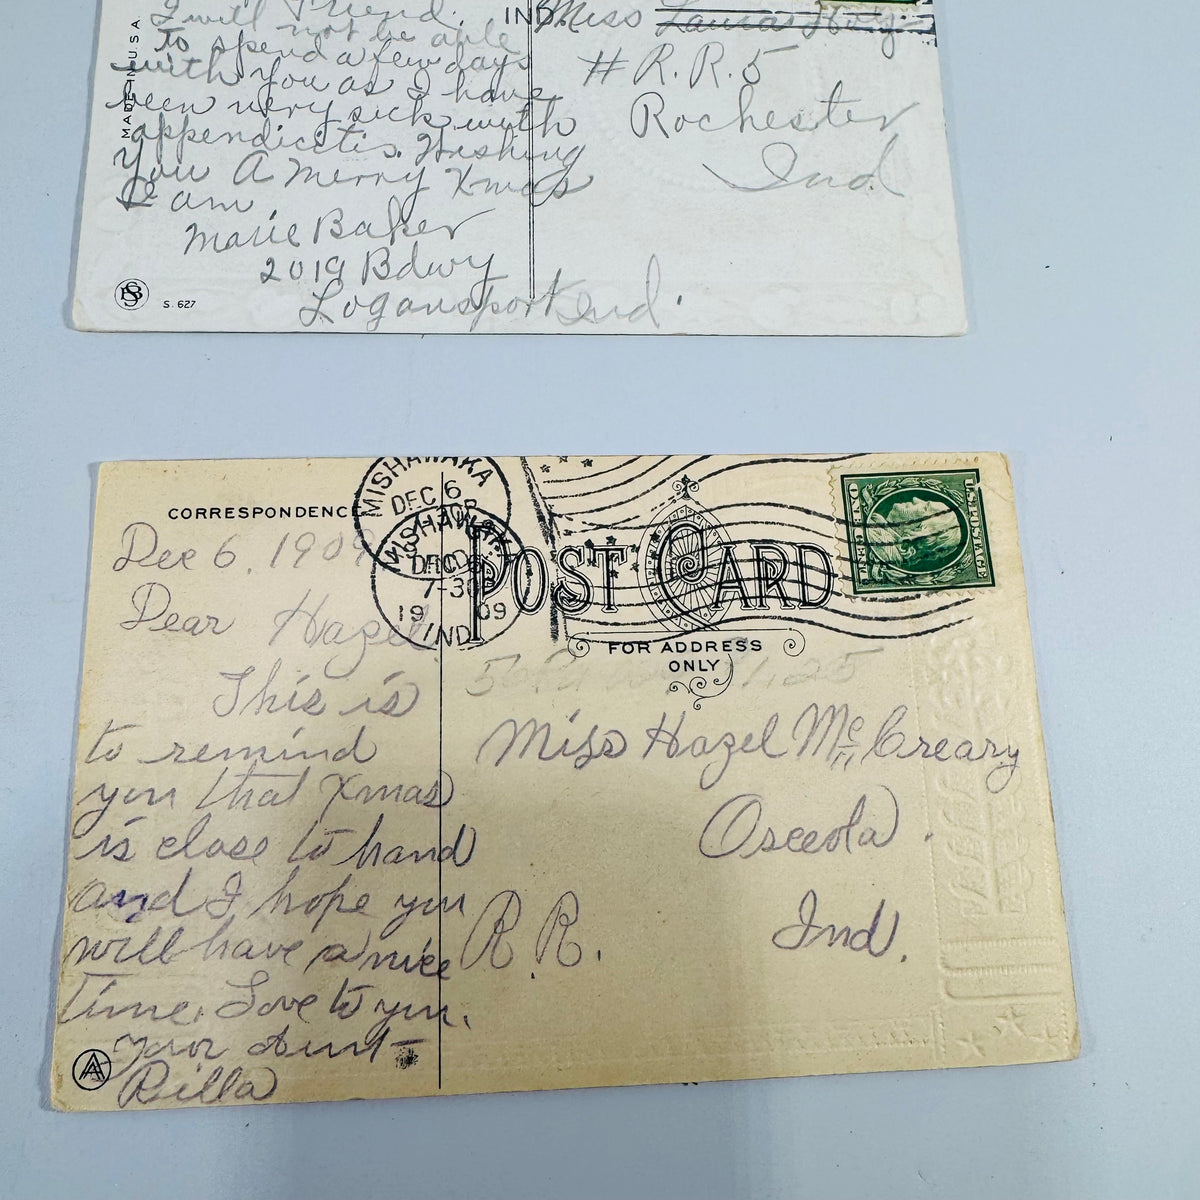 Friend.
I will not be able
to spend a few days
with you as I have
been very sick with
appendicitis. Wishing
You A Merry Xmas
I am,
Marie Baker
2019 Bdwy
Logansport Ind.
MADE IN U.S.A
S. 627
IND.
Miss Laura
# R.R. 5
Rochester
Ind.
CORRESPONDENCE
MISHAWAKA
DEC 6
7-30
1909
IND.
POST CARD
FOR ADDRESS
ONLY
U.S. POSTAGE
ONE CENT
Dec 6, 1909
Dear Hazel
This is
to remind
you that Xmas
is close to hand
and I hope you
will have a nice
time. Love to you.
Your Aunt
Rilla
Miss Hazel McCreary
Osceola.
Ind.
R.R.